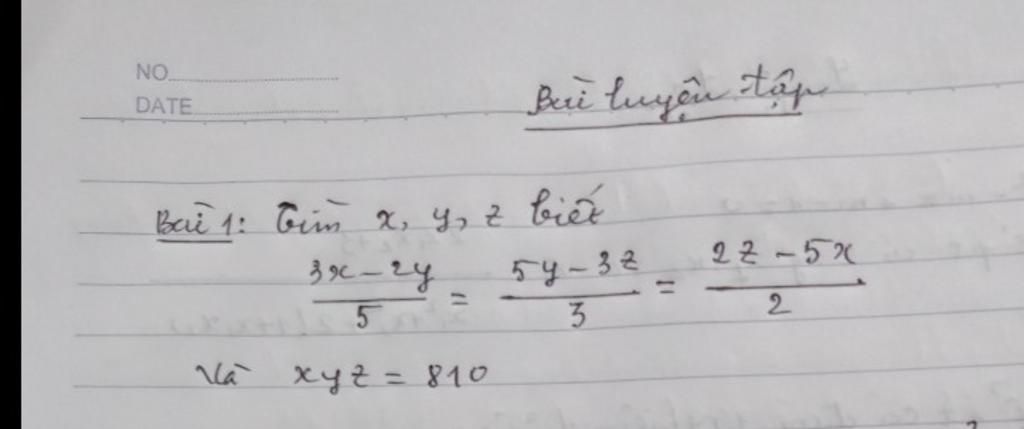 NO
DATE
Bài luyện tập
Bài 1: Tìm x, y, z biết
3x - 2y / 5 = 5y - 3z / 3 = 2z - 5x / 2
Và xyz = 810